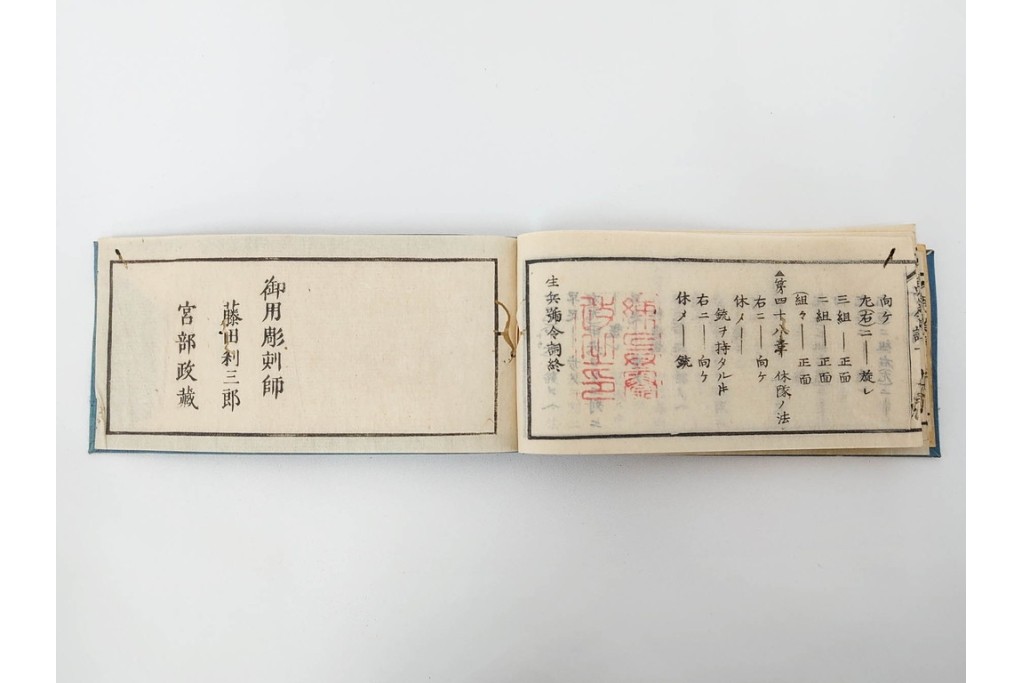 向ケ
九(右)二――旋レ
三組――正面
二組――正面
(組々――正面
第四十八章 休隊ノ法
右ニ――向ケ
休メ――
銃ヲ持タル片
右ニ――向ケ
休メ 銃
生兵號令詞終
御用彫刻師
藤田利三郎
宮部政藏